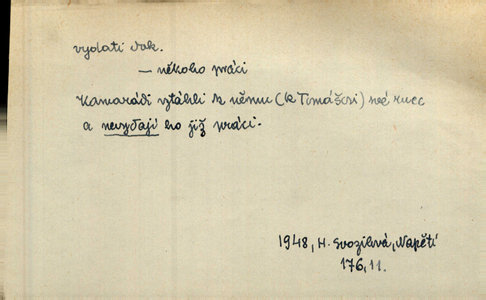 vydati dok.
— někoho práci
Kamarádi vztáhli k němu (k Tomášovi) své ruce
a nevydají ho již práci.
1948, H. Svozilová, Napětí
176, 11.